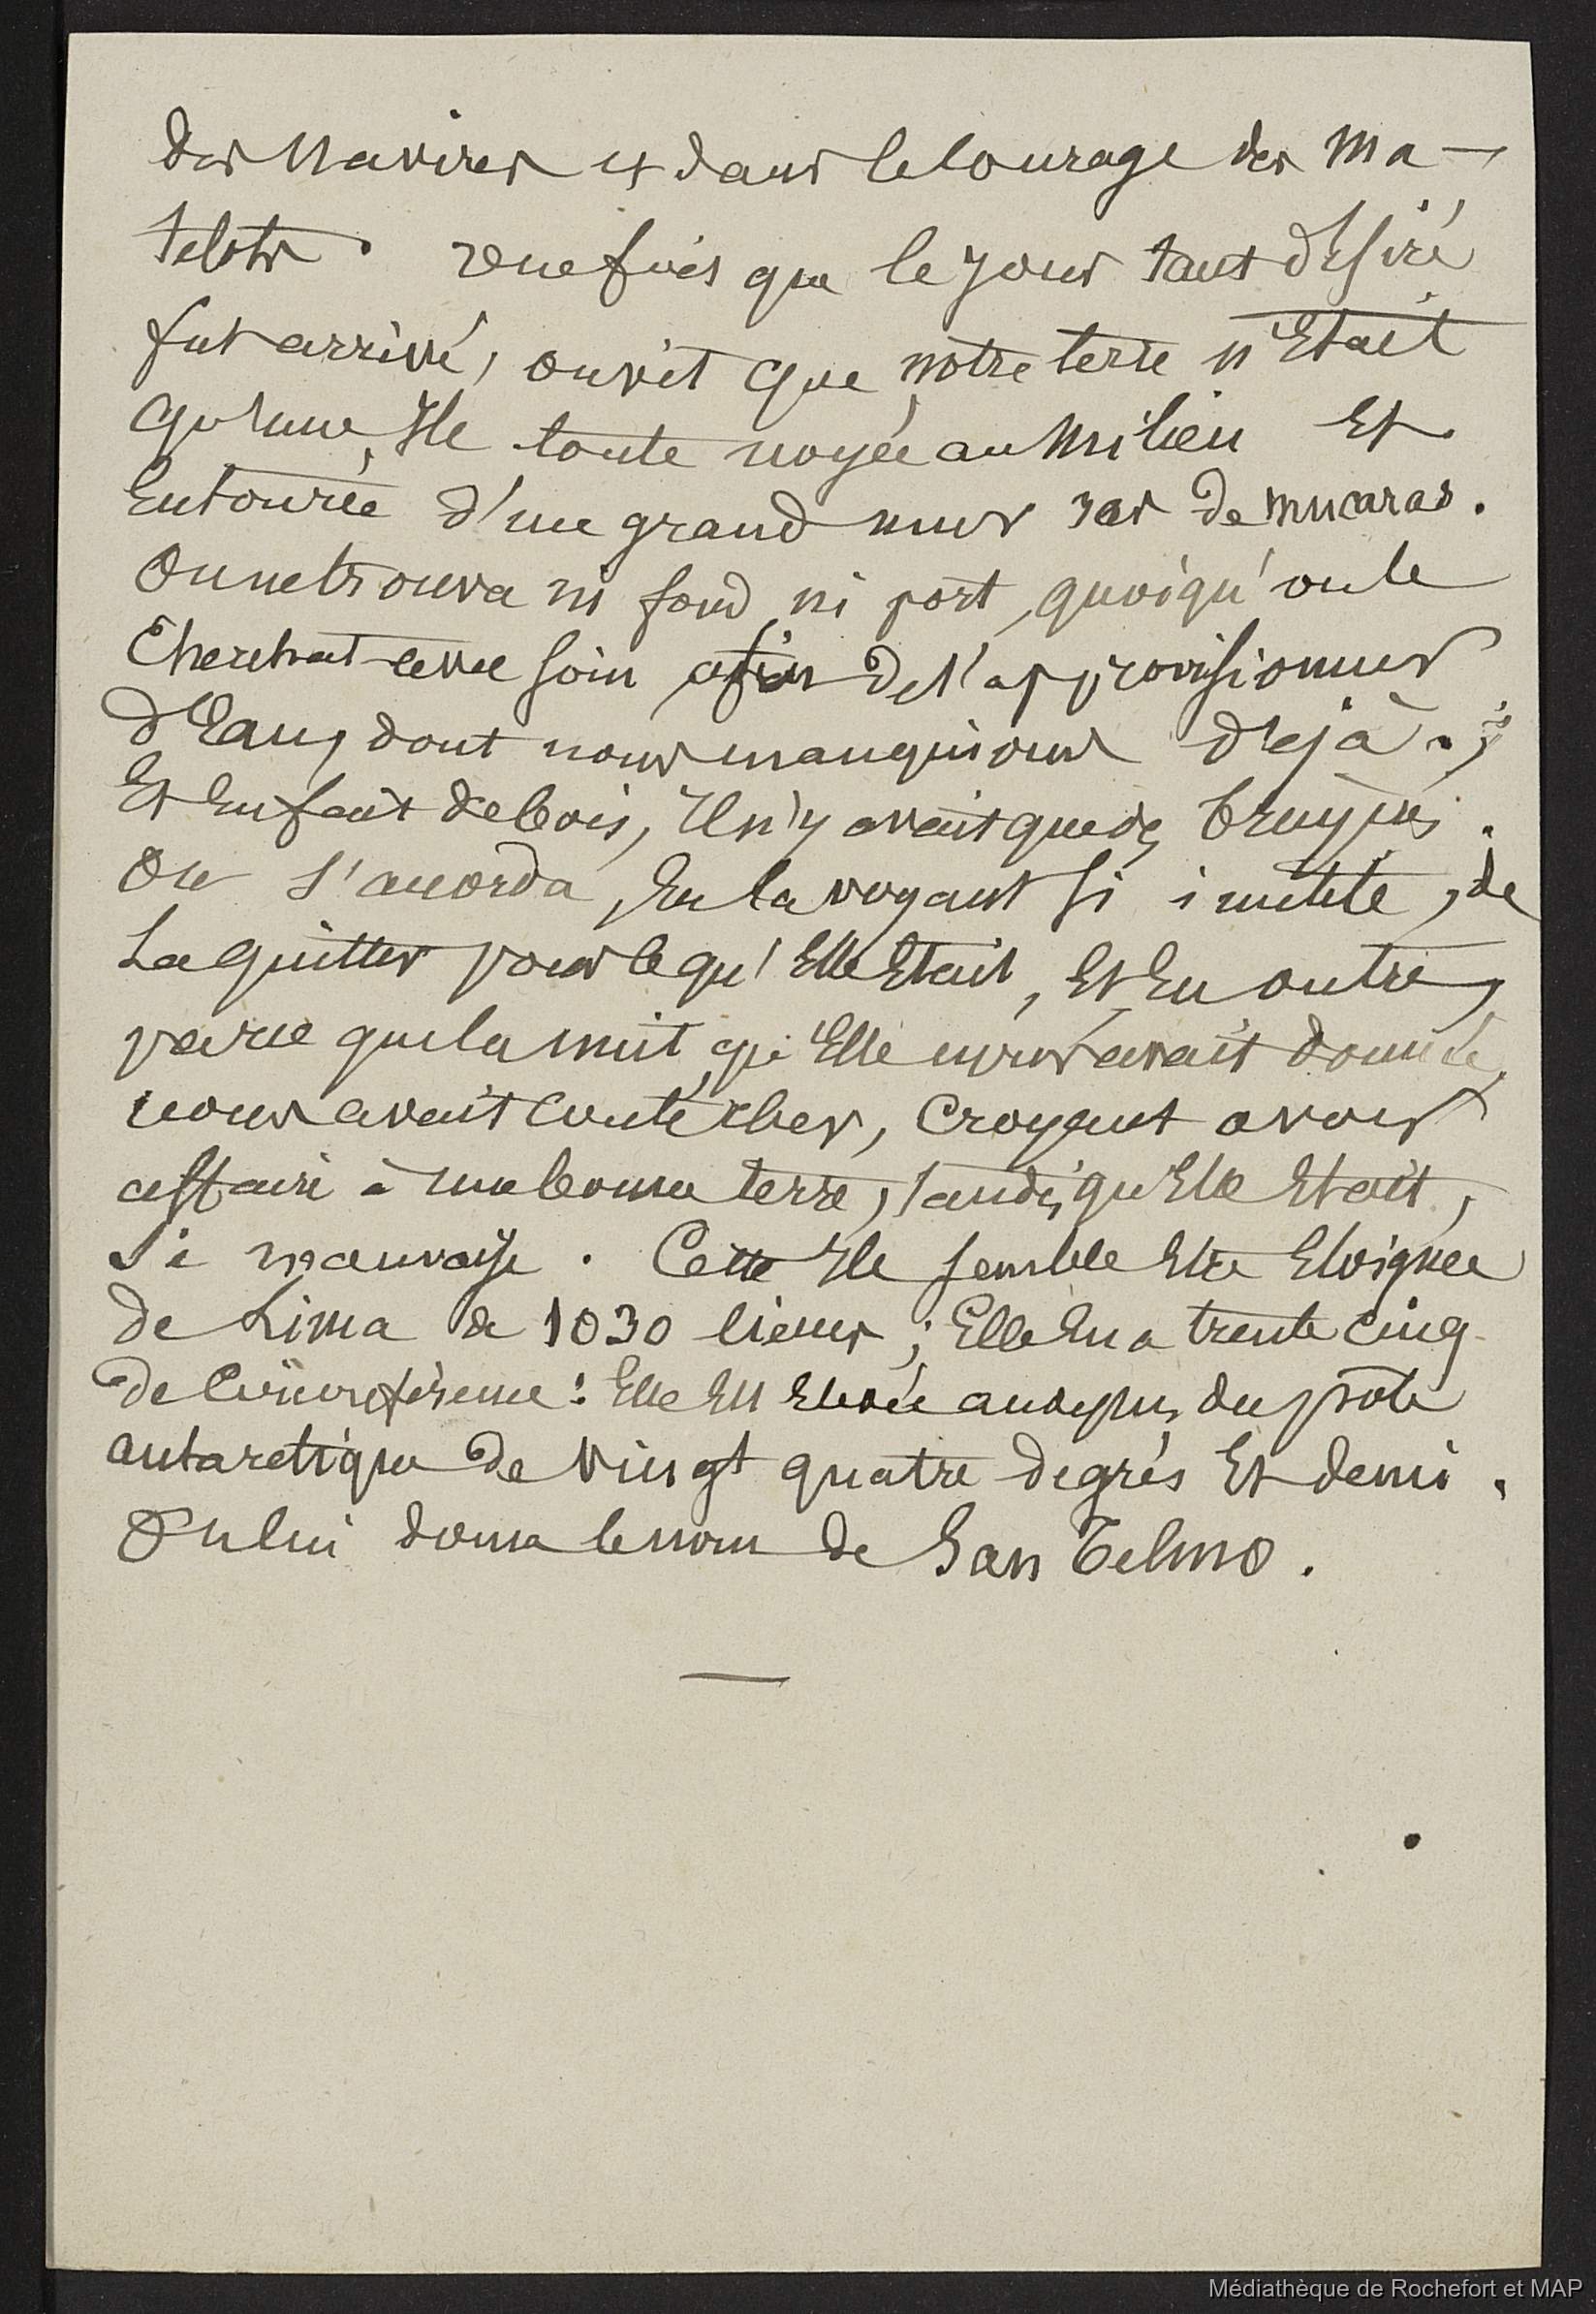 des Navires et dans le Courage des Ma-
telots. Une fois que le jour tant désiré
fut arrivé, on vit que notre terre n'Etait
qu'une Ile toute noyée au Milieu Et
Entourée d'un grand mur ras de mucaras.
On ne trouva ni fond ni port, quoiqu'on le
Cherchat avec soin afin de s'approvisionner
d'Eau, dont nous manquions déjà ;
Et En fait de bois, Il n'y avait que des bruyères.
On s'accorda, En la voyant si inutile, de
La quitter pour ce qu'Elle Etait, Et En outre,
parce que la nuit qu'Elle nous avait donnée,
nous avait Couté cher, Croyant avoir
affaire à une bonne terre, tandis qu'Elle Etait,
Si mauvaise. Cette Ile semble Etre Eloignée
de Lima de 1030 lieues ; Elle En a trente cinq
de Circonférence : Elle Est Elevée au dessus du pôle
antarctique de Vingt quatre degrés Et demi.
On lui donna le nom de San Telmo.
Médiathèque de Rochefort et MAP